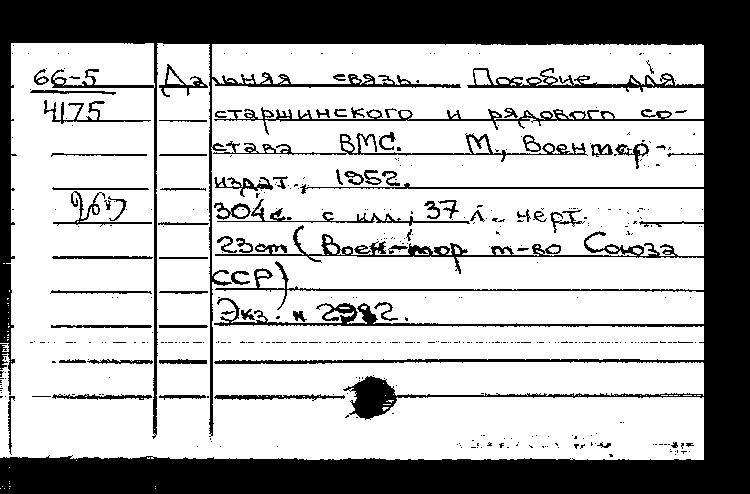 66-5
4175
Дальняя связь. Пособие для
старшинского и рядового со-
става ВМС. М., Воентор-
издат, 1952.
304с. с илл.; 37 л. черт.
23cm (Воен.-мор. т-во Союза
ССР)
Экз. н